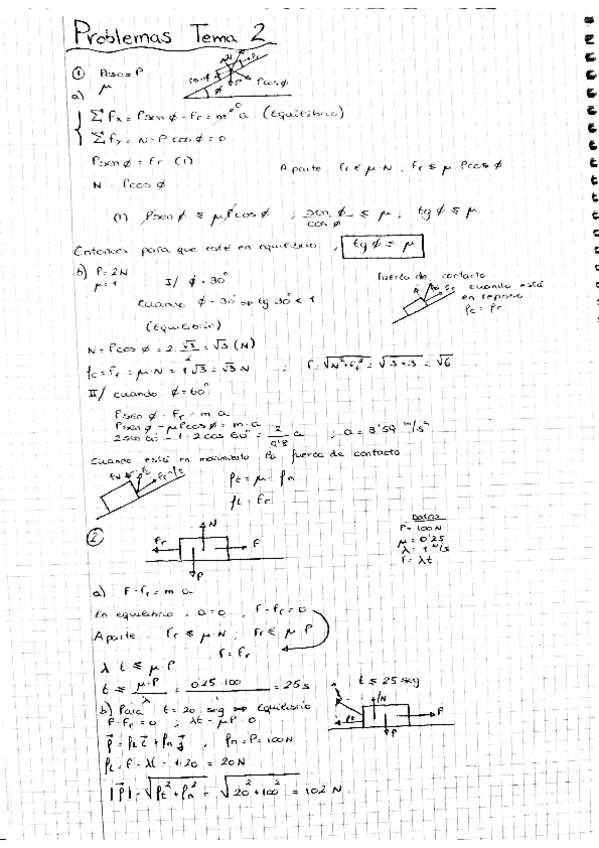 Problemas Tema 2
① Peso = P
μ
a)
N Fr P Pcosφ φ
ΣFx = Psen φ - Fr = m a (Equilibrio)
ΣFy = N - P cos φ = 0
Psen φ = Fr (1)
N = Pcos φ
Aparte Fr ≤ μ·N , Fr ≤ μ·Pcos φ
(1) Psen φ ≤ μPcos φ ; sen φ / cos φ ≤ μ ; tg φ ≤ μ
Entonces para que esté en equilibrio , tg φ ≤ μ
b) P = 2N
μ = 1
I/ φ = 30°
Cuando φ = 30° ⇒ tg 30° < 1
(Equilibrio)
Fuerza de contacto
cuando está
en reposo
N = Pcos φ = 2 · √3/2 = √3 (N)
= Fr = μ·N = 1·√3 = √3 N ; = √3+3 = √6
II/ cuando φ = 60°
Psen φ - Fr = m a
Psen φ - μPcos φ = m·a
2sen 60 - 1·2cos 60° = 2/9'8 a ; a = 3'59 m/s²
Cuando está en movimiento la fuerza de contacto
ft = μ · fn
②
N
Fr F
P
Datos
P = 100N
μ = 0'25
λ = 1 N/s
F = λt
a) F - fr = m a
En equilibrio , a = 0 , F - Fr = 0
Aparte Fr ≤ μ·N ; Fr ≤ μ P
F = Fr
λ t ≤ μ·P
t ≤ μ·P / λ = 0'25·100 = 25s
t ≤ 25 seg
b) Para t = 20 seg ⇒ Equilibrio
F - Fr = 0 , λt - μP = 0
N F P
, = P = 100N
= F = λt = 1·20 = 20N
= √20² + 100² = 102 N